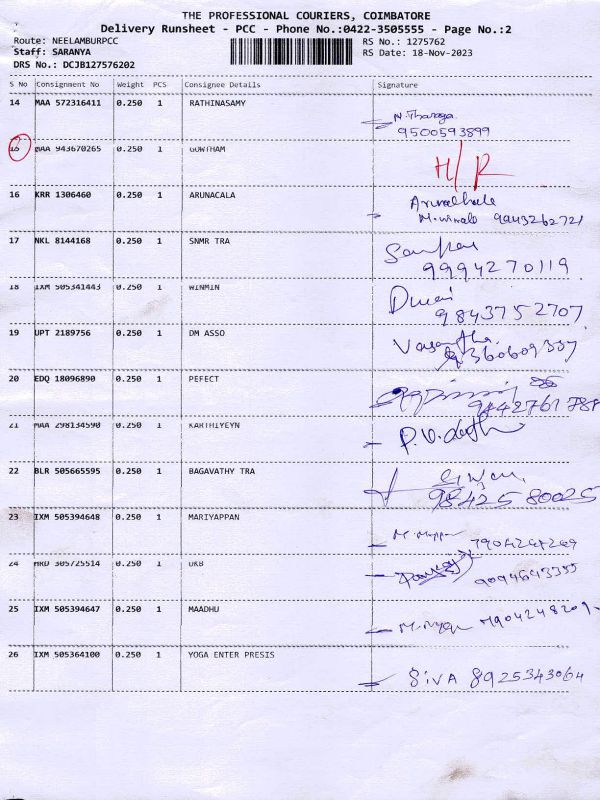 THE PROFESSIONAL COURIERS, COIMBATORE
Delivery Runsheet - PCC - Phone No.:0422-3505555 - Page No.:2
Route: NEELAMBURPCC RS No.: 1275762
Staff: SARANYA RS Date: 18-Nov-2023
DRS No.: DCJB127576202
S No Consignment No Weight PCS Consignee Details Signature
14 MAA 572316411 0.250 1 RATHINASAMY
9500593899
15 MAA 943670265 0.250 1 GOWTHAM H/R
16 KRR 1306460 0.250 1 ARUNACALA
9843262721
17 NKL 8144168 0.250 1 SNMR TRA
9994270119
18 IXM 505341443 0.250 1 WINMIN
9843752707
19 UPT 2189756 0.250 1 DM ASSO Vasantha
9360609307
20 EDQ 18096890 0.250 1 PEFECT
9842761788
21 MAA 298134590 0.250 1 KARTHIYEYN
22 BLR 505665595 0.250 1 BAGAVATHY TRA
98425 80025
23 IXM 505394648 0.250 1 MARIYAPPAN
24 HRD 305725514 0.250 1 UKB
9094643355
25 IXM 505394647 0.250 1 MAADHU
26 IXM 505364100 0.250 1 YOGA ENTER PRESIS
SIVA 8925343064